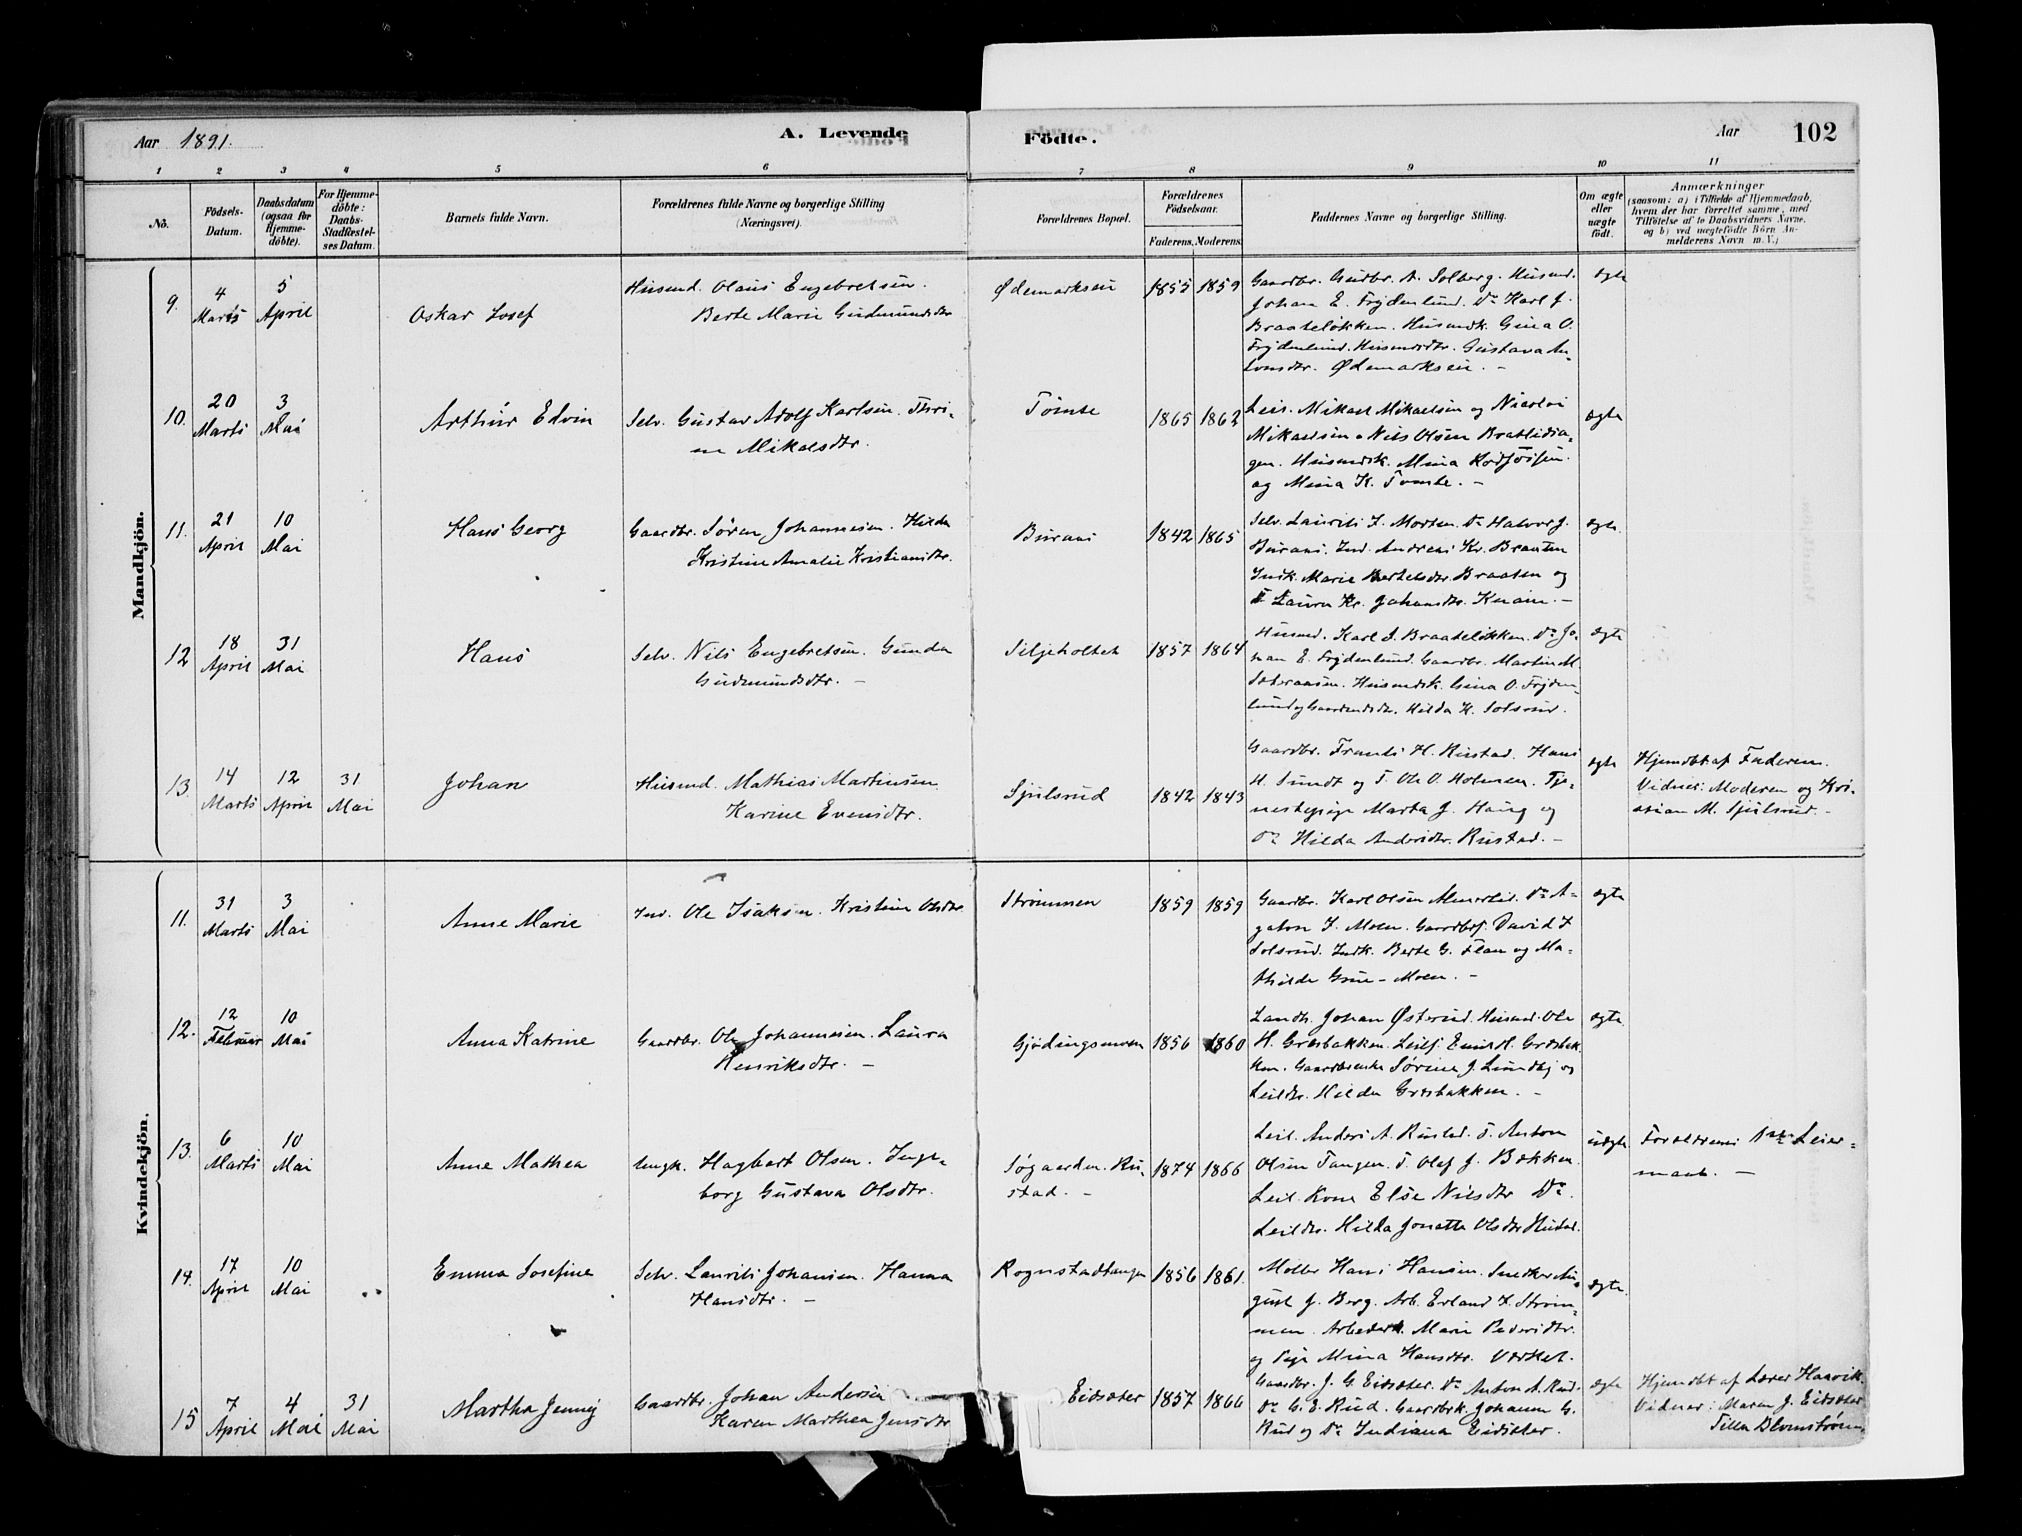 Aar 1891.
A. Levende
Födte.
Aar
102
1 2 3 4 5 6 7 8 9 10 11
No.
Födsels-
Datum.
Daabsdatum
(ogsaa for
Hjemme-
döbte).
For Hjemme-
döbte:
Daabs-
Stadfæstel-
ses Datum.
Barnets fulde Navn.
Forældrenes fulde Navne og borgerlige Stilling
(Næringsvei).
Forældrenes Bopæl.
Forældrenes
Födselsaar.
Faderens. Moderens.
Faddernes Navne og borgerlige Stilling.
Om ægte
eller
uægte
födt.
Anmærkninger
(saasom: a) i Tilfælde af Hjemmedaab,
hvem der har forrettet samme, med
Tilföielse af to Daabsvidners Navne,
og b) ved uægtefödte Börn An-
melderens Navn m. V.)
Mandkjön.
9.
4
Marts
5
April
Oskar Josef
Husmd. Olaus Engebretsen.
Berte Marie Gudmundsdtr
Ødemarkseie
1855 1859
Gaardbr. Gudbr. A. Solberg. Husmd.
Johan E. Frydenlund. Do Karl J.
Braateløkken. Husmdk. Gina O.
Frydenlund. Husmdsdtr. Gustava An-
tonsdtr. Ødemarkseie. –
ægte
10.
20
Marts
3
Mai
Arthur Edvin
Selv. Gustav Adolf Karlsen. Thri-
ne Mikaelsdtr.
Tømte
1865 1862
Leil. Mikael Mikaelsen og Nicolai
Mikaelsen. Nils Olsen
Husmdsk. Mina
og Mina K. Tømte. –
ægte
11.
21
April
10
Mai
Hans Georg
Gaardbr. Søren Johannesen. Hilda
Kristine Amalie Kristiansdtr.
Buraas
1842 1865
Selv. Laurits J. Morten. Do Halvor J.
Buraas. Ind. Andreas Kr. Braaten
Indk. Marie Bertelsdtr Braaten og
Laura Kr. Johansdtr.
ægte
12
18
April
31
Mai
Hans
Selv. Nils Engebretsen. Gunda
Gudmundsdtr. –
Siljeholtet
1857 1864
Husmd. Karl J. Braateløkken. Do Jo-
han E. Frydenlund. Gaardbr. Martin M.
Husmdsk. Gina O. Fryden-
lund og Hilda K. Solsrud.
ægte
13.
14
Marts
12
April
31
Mai
Johan
Husmd. Mathias Martinsen.
Karine Evensdtr.
Spilsrud
1842 1843
Gaardbr. Frants H. Rustad. Hans
H. Sundt og T. Ole O. Holmen. Tje-
nestepige Marta J. Haug og
Do Hilda Andersdtr. Rustad. –
ægte
Hjemdbt af Faderen.
Vidner: Moderen og Kri-
stian M. Spilsrud. –
Kvindekjön.
11.
31
Marts
3
Mai
Anne Marie
Ind. Ole Isaksen. Kristine Olsdtr
Strømmen
1859 1859
Gaardbr. Karl Olsen Do A-
gaton J. Moen. David J
Solsrud. Indk. Berte G. Flan og Ma-
thilde Moen. –
ægte
12.
12
Februar
10
Mai
Anna Katrine
Gaardbr. Ole Johannesen. Laura
Henriksdtr. –
Gjødingsmoen
1856 1860
Landh. Johan Østerud. Husmd. Ole
H. Græsbakken. Leils. Emil H. Græsbak-
ken. Gaardbrenke Sørine J. Lundby og
Leildtr. Hilda Græsbakken. –
ægte
13.
6
Marts
10
Mai
Anne Mathea
Ungk. Hagbart Olsen. Inge-
borg Gustava Olsdtr.
Søgaarden. Ru-
stad. –
1874 1866
Leil. Anders A. Rustad. T. Anton
Olsen Tangen. T. Olaf J. Bakken.
Leil. Kone Else Nilsdtr Do.
Leildtr. Hilda Jonette Olsdtr
uægte
Forældrenes 1ste Leier-
maal. –
14.
17
April
10
Mai
Emma Josefine
Selv. Laurits Johansen. Hanna
Hansdtr. –
Rognstadtangen
1856 1861.
Møller Hans Hansen. Snedker Au-
gust J. Berg. Arb. Erland J. Strøm-
men. Arbederk. Marie Pedersdtr.
og Pige Mina Hansdtr. Værket.
ægte.
15
7
April
4
Mai
31
Mai
Martha Jenny
Gaardbr. Johan Andersen
Karen Marthea Jensdtr
Eidsæter
1857 1866
Gaardbr. J. G. Eidsæter. Do Anton A. Rud.
Do C. E. Rud. Gaardbrk. Johanne G.
Rud og Do Indiana Eidsæter.
ægte
Hjemdbt af Lærer Haavik.
Vidner: Maren J. Eidsæter
Tilla Blomstrøm.